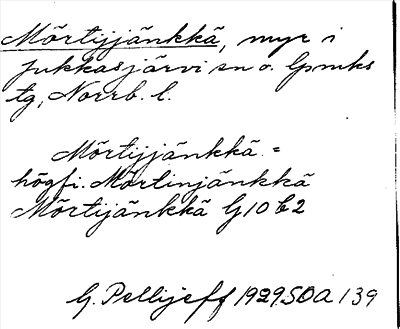 Mõrtijjänkkä, myr i
Jukkasjärvi sn o. Lpmks
tg, Norrb. l.
Mõrtijjänkkä =
högfi. Mõrtinjänkkä
Mõrtijänkkä G10 b2
G. Pellijeff 1929 SOA 139